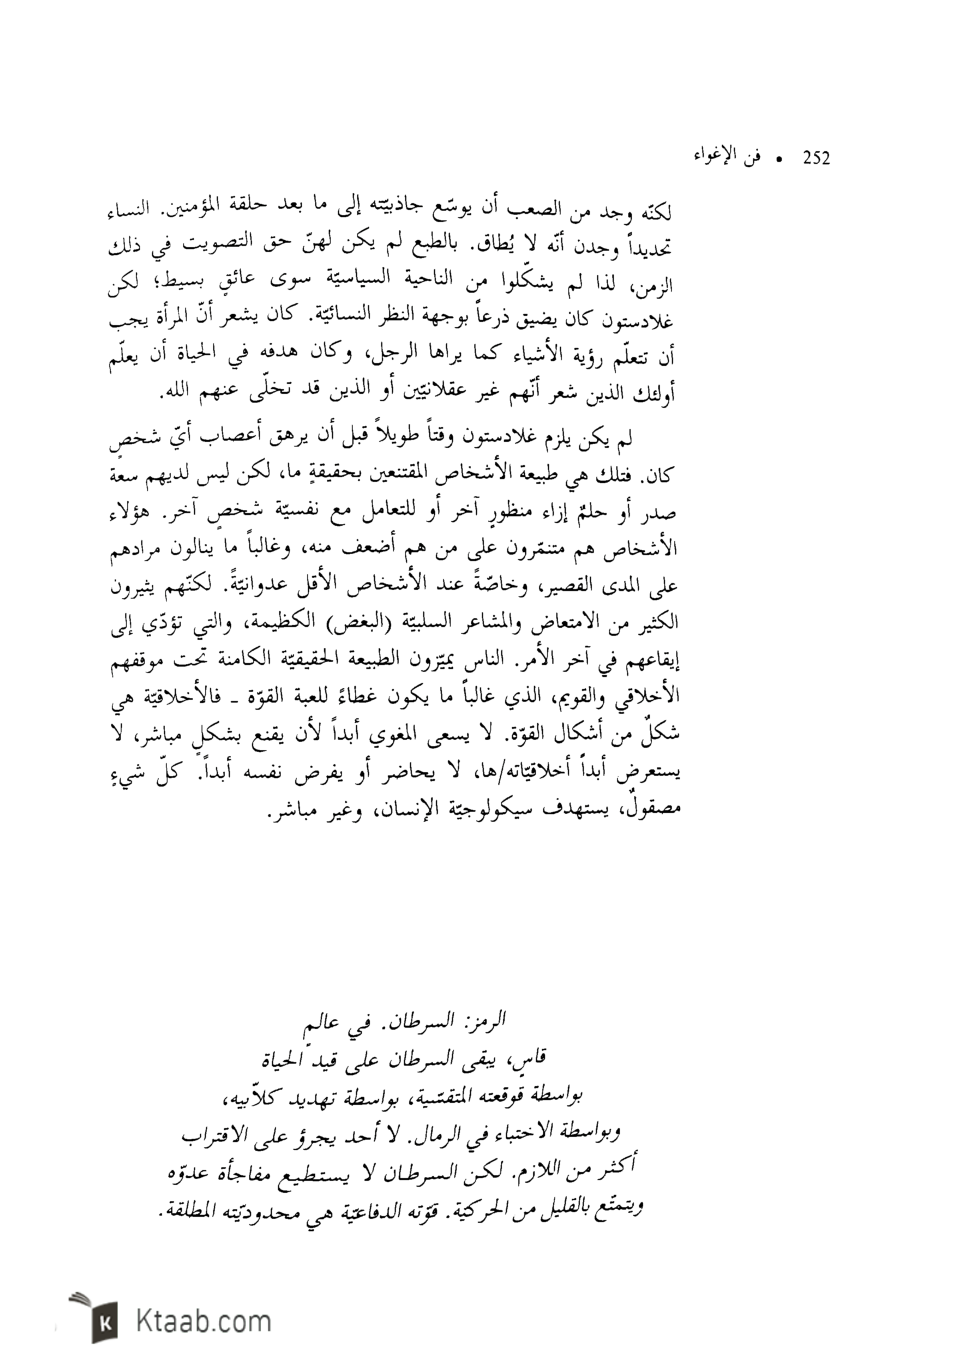 252 • فن الإغواء
لكنّه وجد من الصعب أن يوسّع جاذبيّته إلى ما بعد حلقة المؤمنين. النساء
تحديداً وجدن أنّه لا يُطاق. بالطبع لم يكن لهنّ حق التصويت في ذلك
الزمن، لذا لم يشكّلوا من الناحية السياسيّة سوى عائقٍ بسيط؛ لكن
غلادستون كان يضيق ذرعاً بوجهة النظر النسائيّة. كان يشعر أنّ المرأة يجب
أن تتعلّم رؤية الأشياء كما يراها الرجل، وكان هدفه في الحياة أن يعلّم
أولئك الذين شعر أنّهم غير عقلانيّين أو الذين قد تخلّى عنهم الله.
لم يكن يلزم غلادستون وقتاً طويلاً قبل أن يرهق أعصاب أيّ شخصٍ
كان. فتلك هي طبيعة الأشخاص المقتنعين بحقيقةٍ ما، لكن ليس لديهم سعة
صدر أو حلمٌ إزاء منظورٍ آخر أو للتعامل مع نفسيّة شخصٍ آخر. هؤلاء
الأشخاص هم متنمّرون على من هم أضعف منه، وغالباً ما ينالون مرادهم
على المدى القصير، وخاصّةً عند الأشخاص الأقل عدوانيّةً. لكنّهم يثيرون
الكثير من الامتعاض والمشاعر السلبيّة (البغض) الكظيمة، والتي تؤدّي إلى
إيقاعهم في آخر الأمر. الناس يميّزون الطبيعة الحقيقيّة الكامنة تحت موقفهم
الأخلاقي والقويم، الذي غالباً ما يكون غطاءً للعبة القوّة ـ فالأخلاقيّة هي
شكلٌ من أشكال القوّة. لا يسعى المغوي أبداً لأن يقنع بشكلٍ مباشر، لا
يستعرض أبداً أخلاقيّاته/ها، لا يحاضر أو يفرض نفسه أبداً. كلّ شيءٍ
مصقولٌ، يستهدف سيكولوجيّة الإنسان، وغير مباشر.
الرمز: السرطان. في عالمٍ
قاسٍ، يبقى السرطان على قيد الحياة
بواسطة قوقعته المتقسّية، بواسطة تهديد كلاّبيه،
وبواسطة الاختباء في الرمال. لا أحد يجرؤ على الاقتراب
أكثر من اللازم. لكن السرطان لا يستطيع مفاجأة عدوّه
ويتمتّع بالقليل من الحركيّة. قوّته الدفاعيّة هي محدوديّته المطلقة.
K Ktaab.com